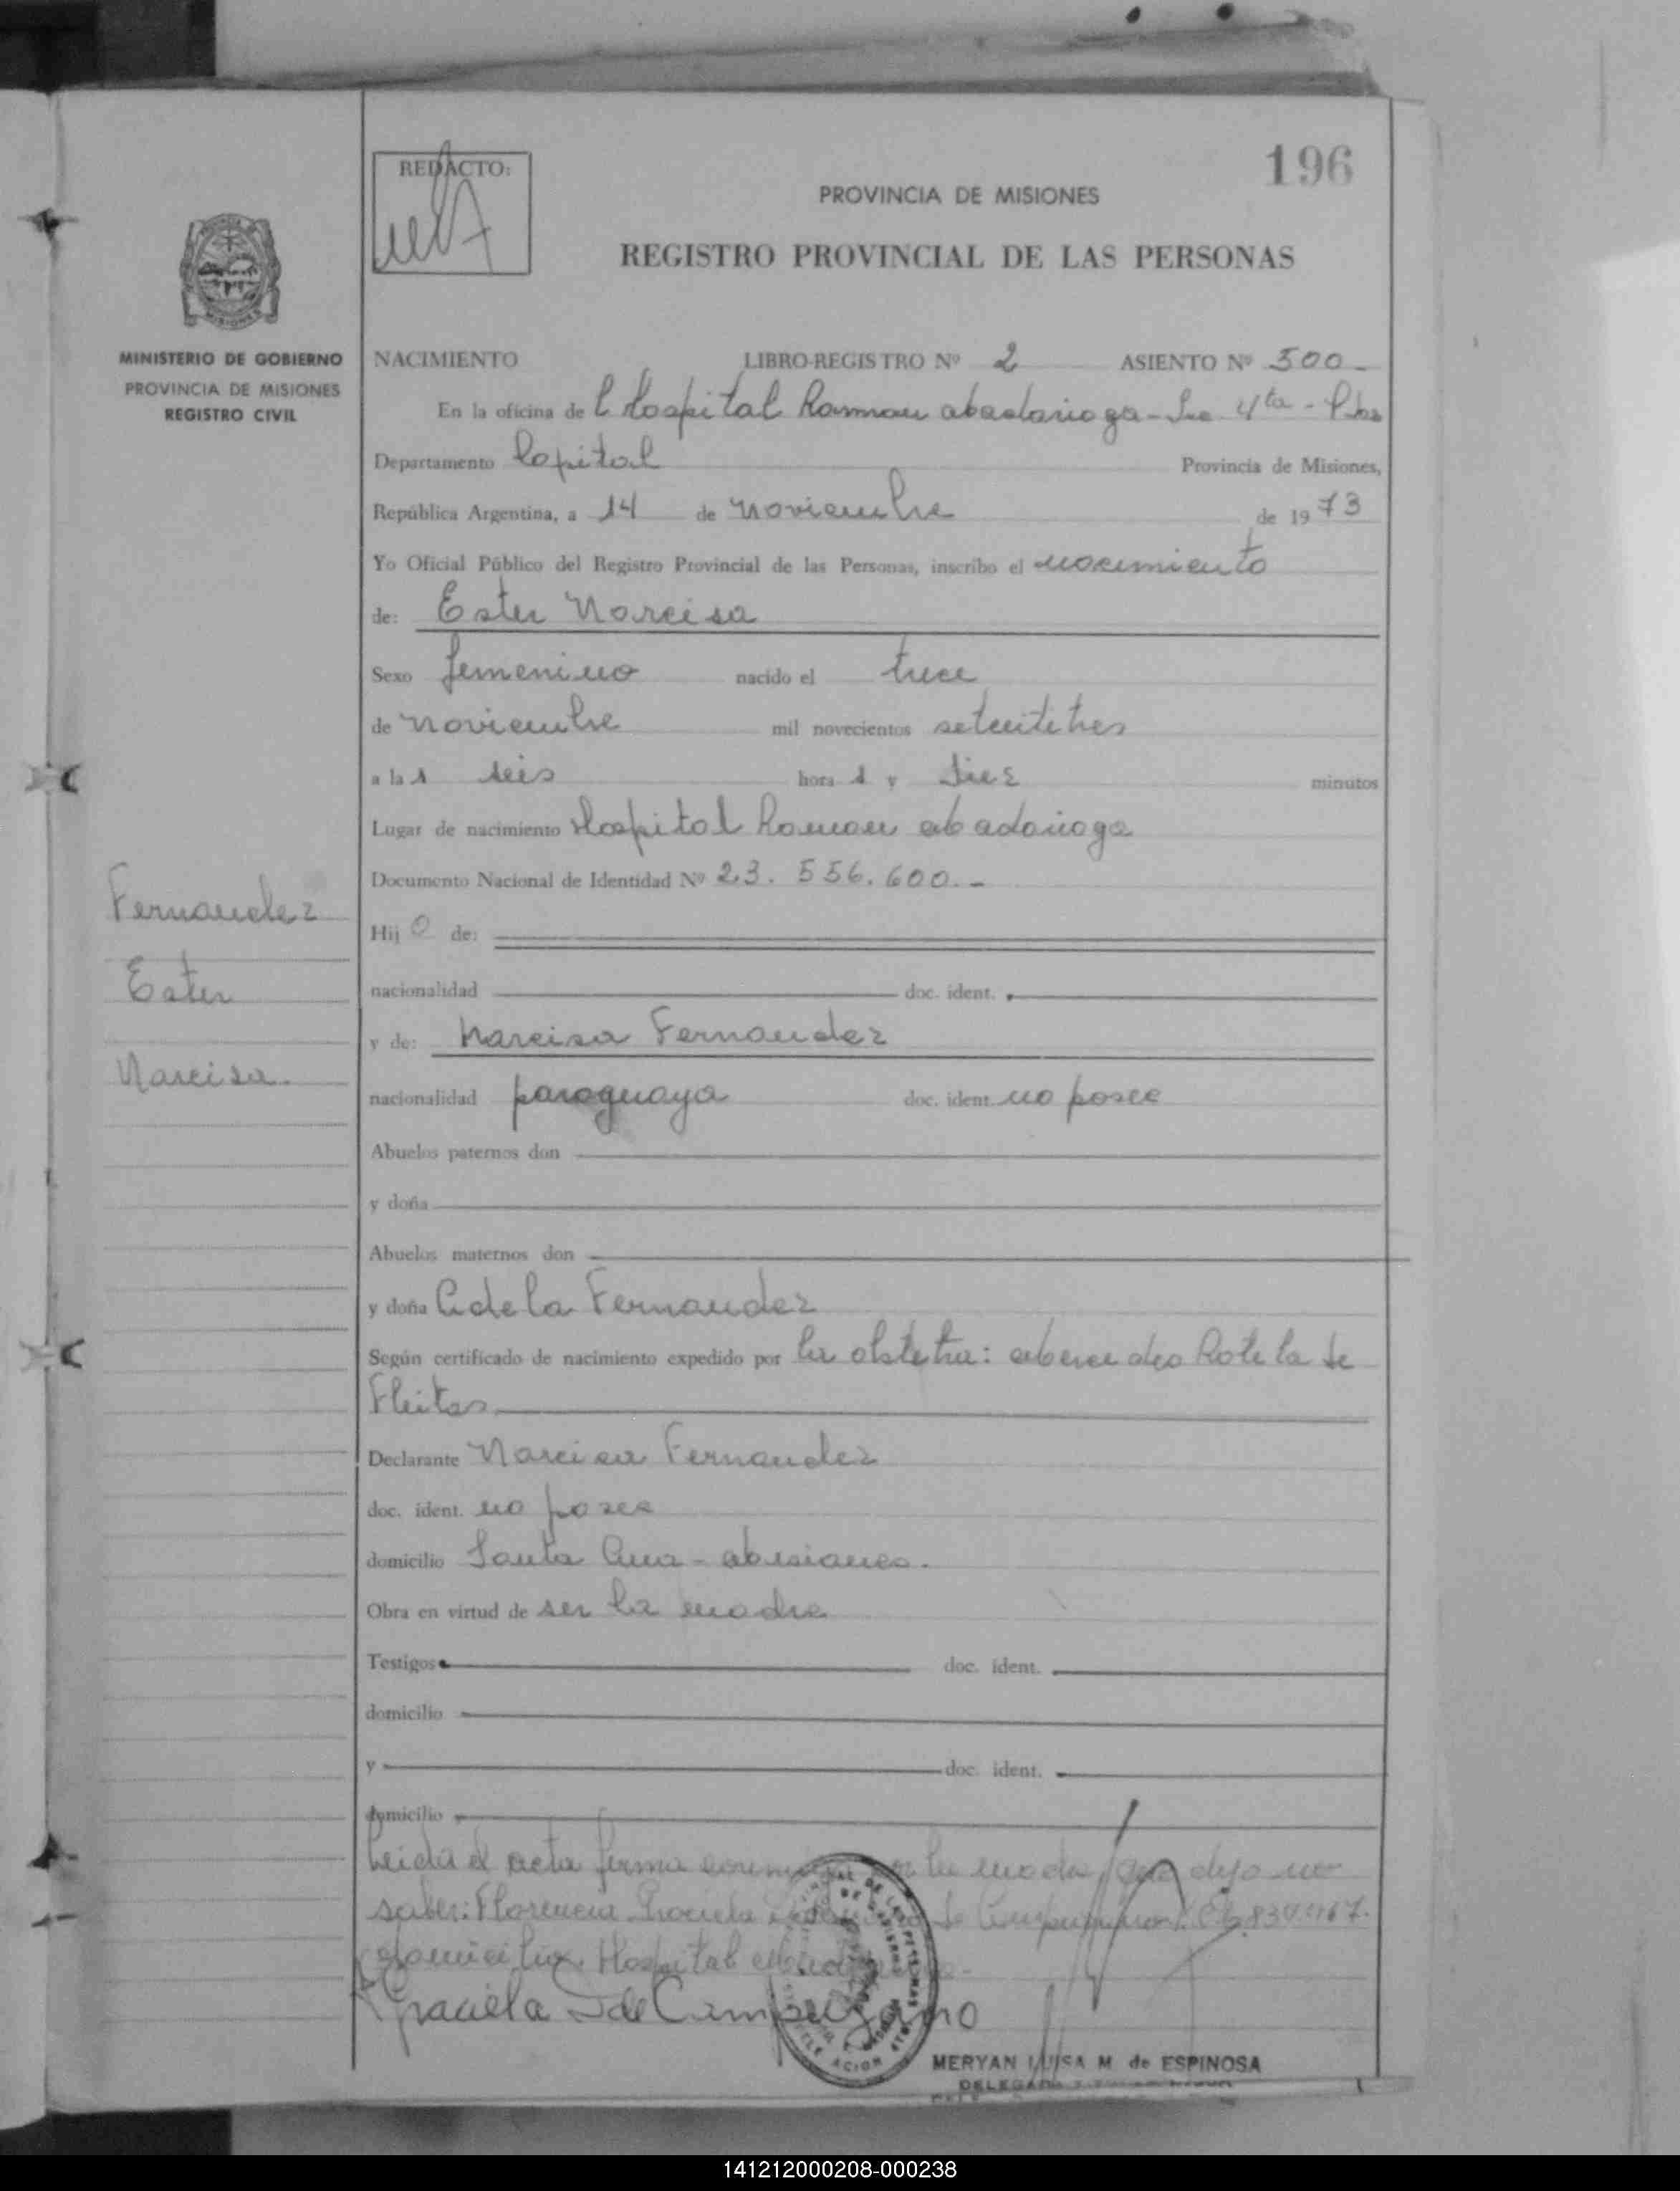 196
REDACTO:
PROVINCIA DE MISIONES
REGISTRO PROVINCIAL DE LAS PERSONAS
MINISTERIO DE GOBIERNO
PROVINCIA DE MISIONES
REGISTRO CIVIL
NACIMIENTO LIBRO-REGISTRO Nº 2 ASIENTO Nº 500-
En la oficina de Hospital Ramon Madariaga - 4ta -
Departamento Capital Provincia de Misiones,
República Argentina, a 14 de Noviembre de 1973
Yo Oficial Público del Registro Provincial de las Personas, inscribo el nacimiento
de: Ester Narcisa
Sexo femenino nacido el trece
de noviembre mil novecientos
a la s seis hora s y diez minutos
Lugar de nacimiento Hospital Ramon Madariaga
Documento Nacional de Identidad Nº 23.556.600.-
Fernandez
Ester
Narcisa.
Hij de:
nacionalidad doc. ident.
y de: Narcisa Fernandez
nacionalidad paraguaya doc. ident. no posee
Abuelos paternos don
y doña
Abuelos maternos don
y doña Adela Fernandez
Según certificado de nacimiento expedido por la obstetra: Mercedes Rotela de
Fleitas
Declarante Narcisa Fernandez
doc. ident. no posee
domicilio Santa Ana - Misiones.
Obra en virtud de ser la madre
Testigos doc. ident.
domicilio
y doc. ident.
domicilio
Leida el acta firma la madre que dijo no
saber: Florencia Graciela de
domicilio Hospital
Graciela de Campuzano
MERYAN LUISA M. de ESPINOSA
141212000208-000238